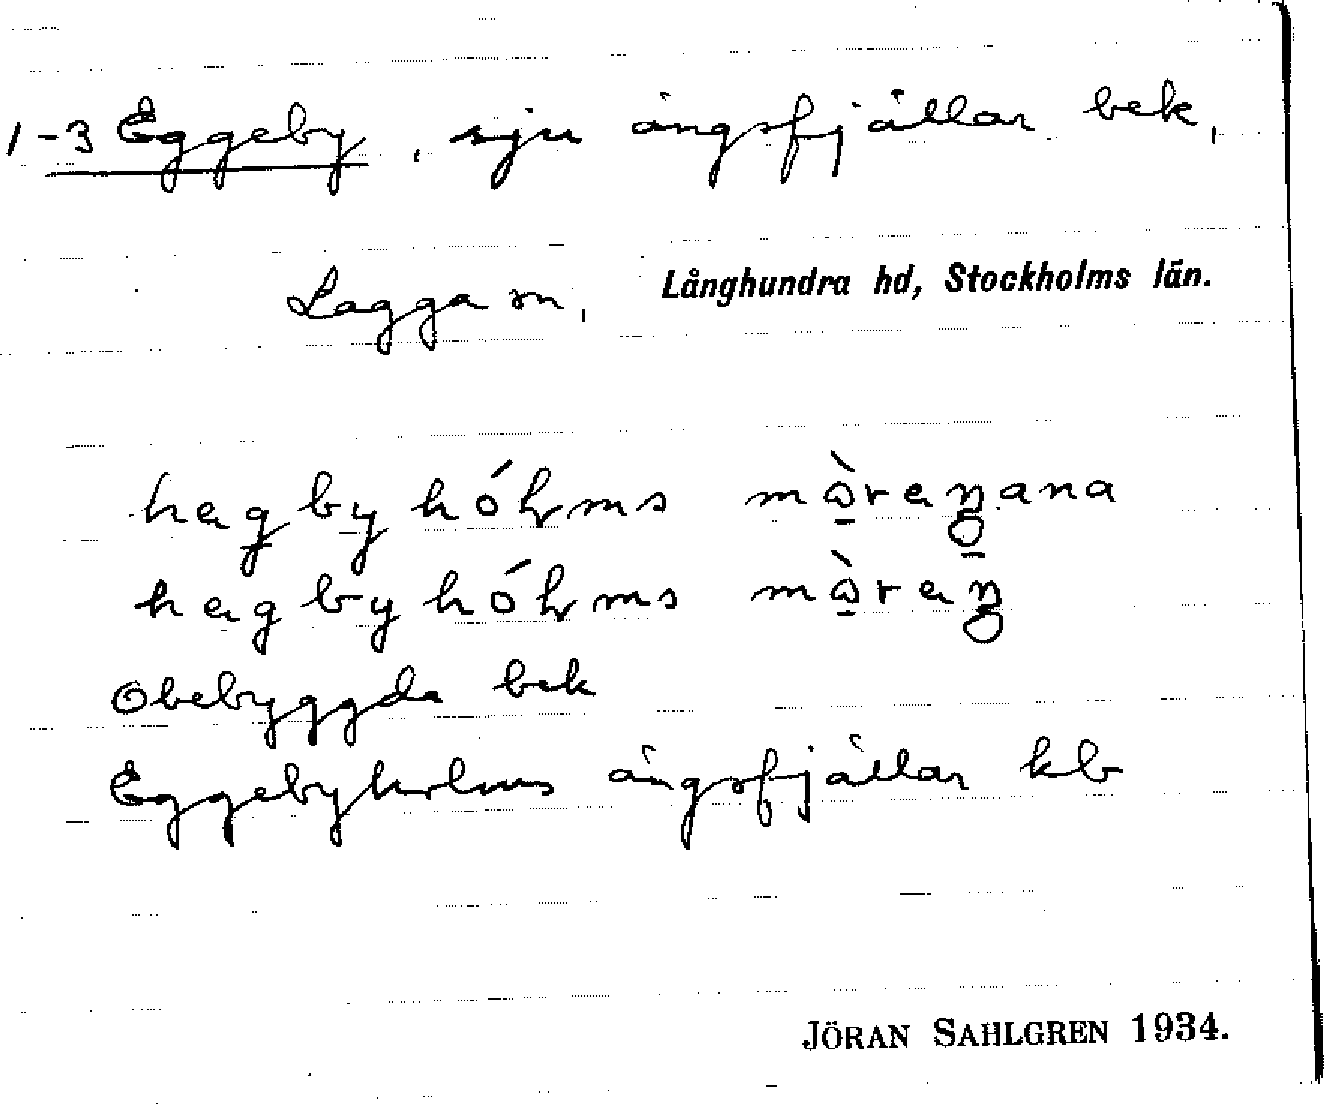 1-3 Eggeby, sju ängsfjällar bek,
Lagga sn, Långhundra hd, Stockholms län.
hegbyhólms mòreŋana
hegbyhólms mòreŋ
Obebyggda bek
Eggebyholms ängsfjällar kb
JÖRAN SAHLGREN 1934.